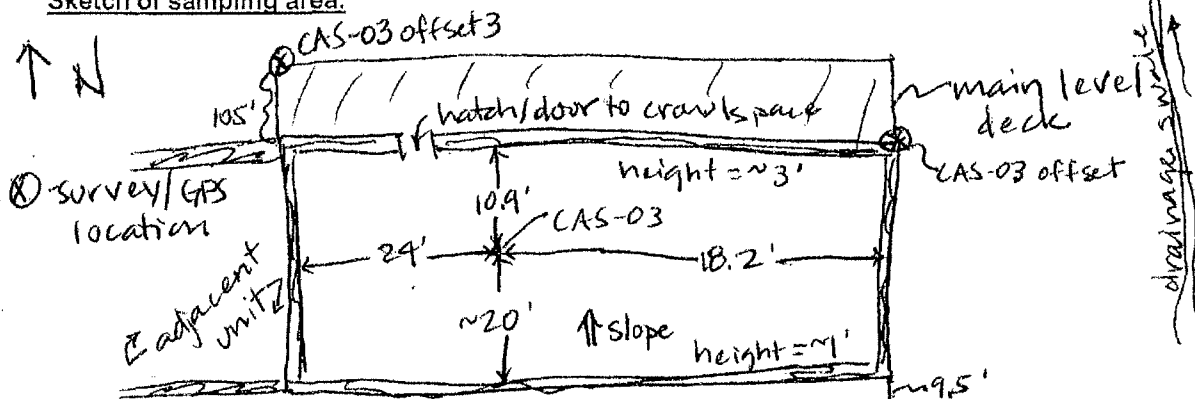 Sketch of sampling area:
↑ N
CAS-03 offset 3
105'
hatch/door to crawlspace
main level
deck
drainage swale
⊗ survey/GPS
location
height = ~3'
CAS-03 offset
10.9'
CAS-03
24'
18.2'
adjacent
unit
~20'
⇑ slope
height = ~1'
~9.5'